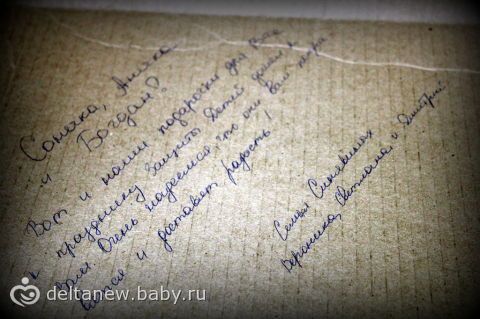 и Богдан!
Вот и наши подарочки для Вас
к празднику Защиты детей дошли к
Вам. Очень надеемся что они Вам понра-
вятся и доставят радость!
Семья
Вероника, Светлана и Дмитрий
deltanew.baby.ru